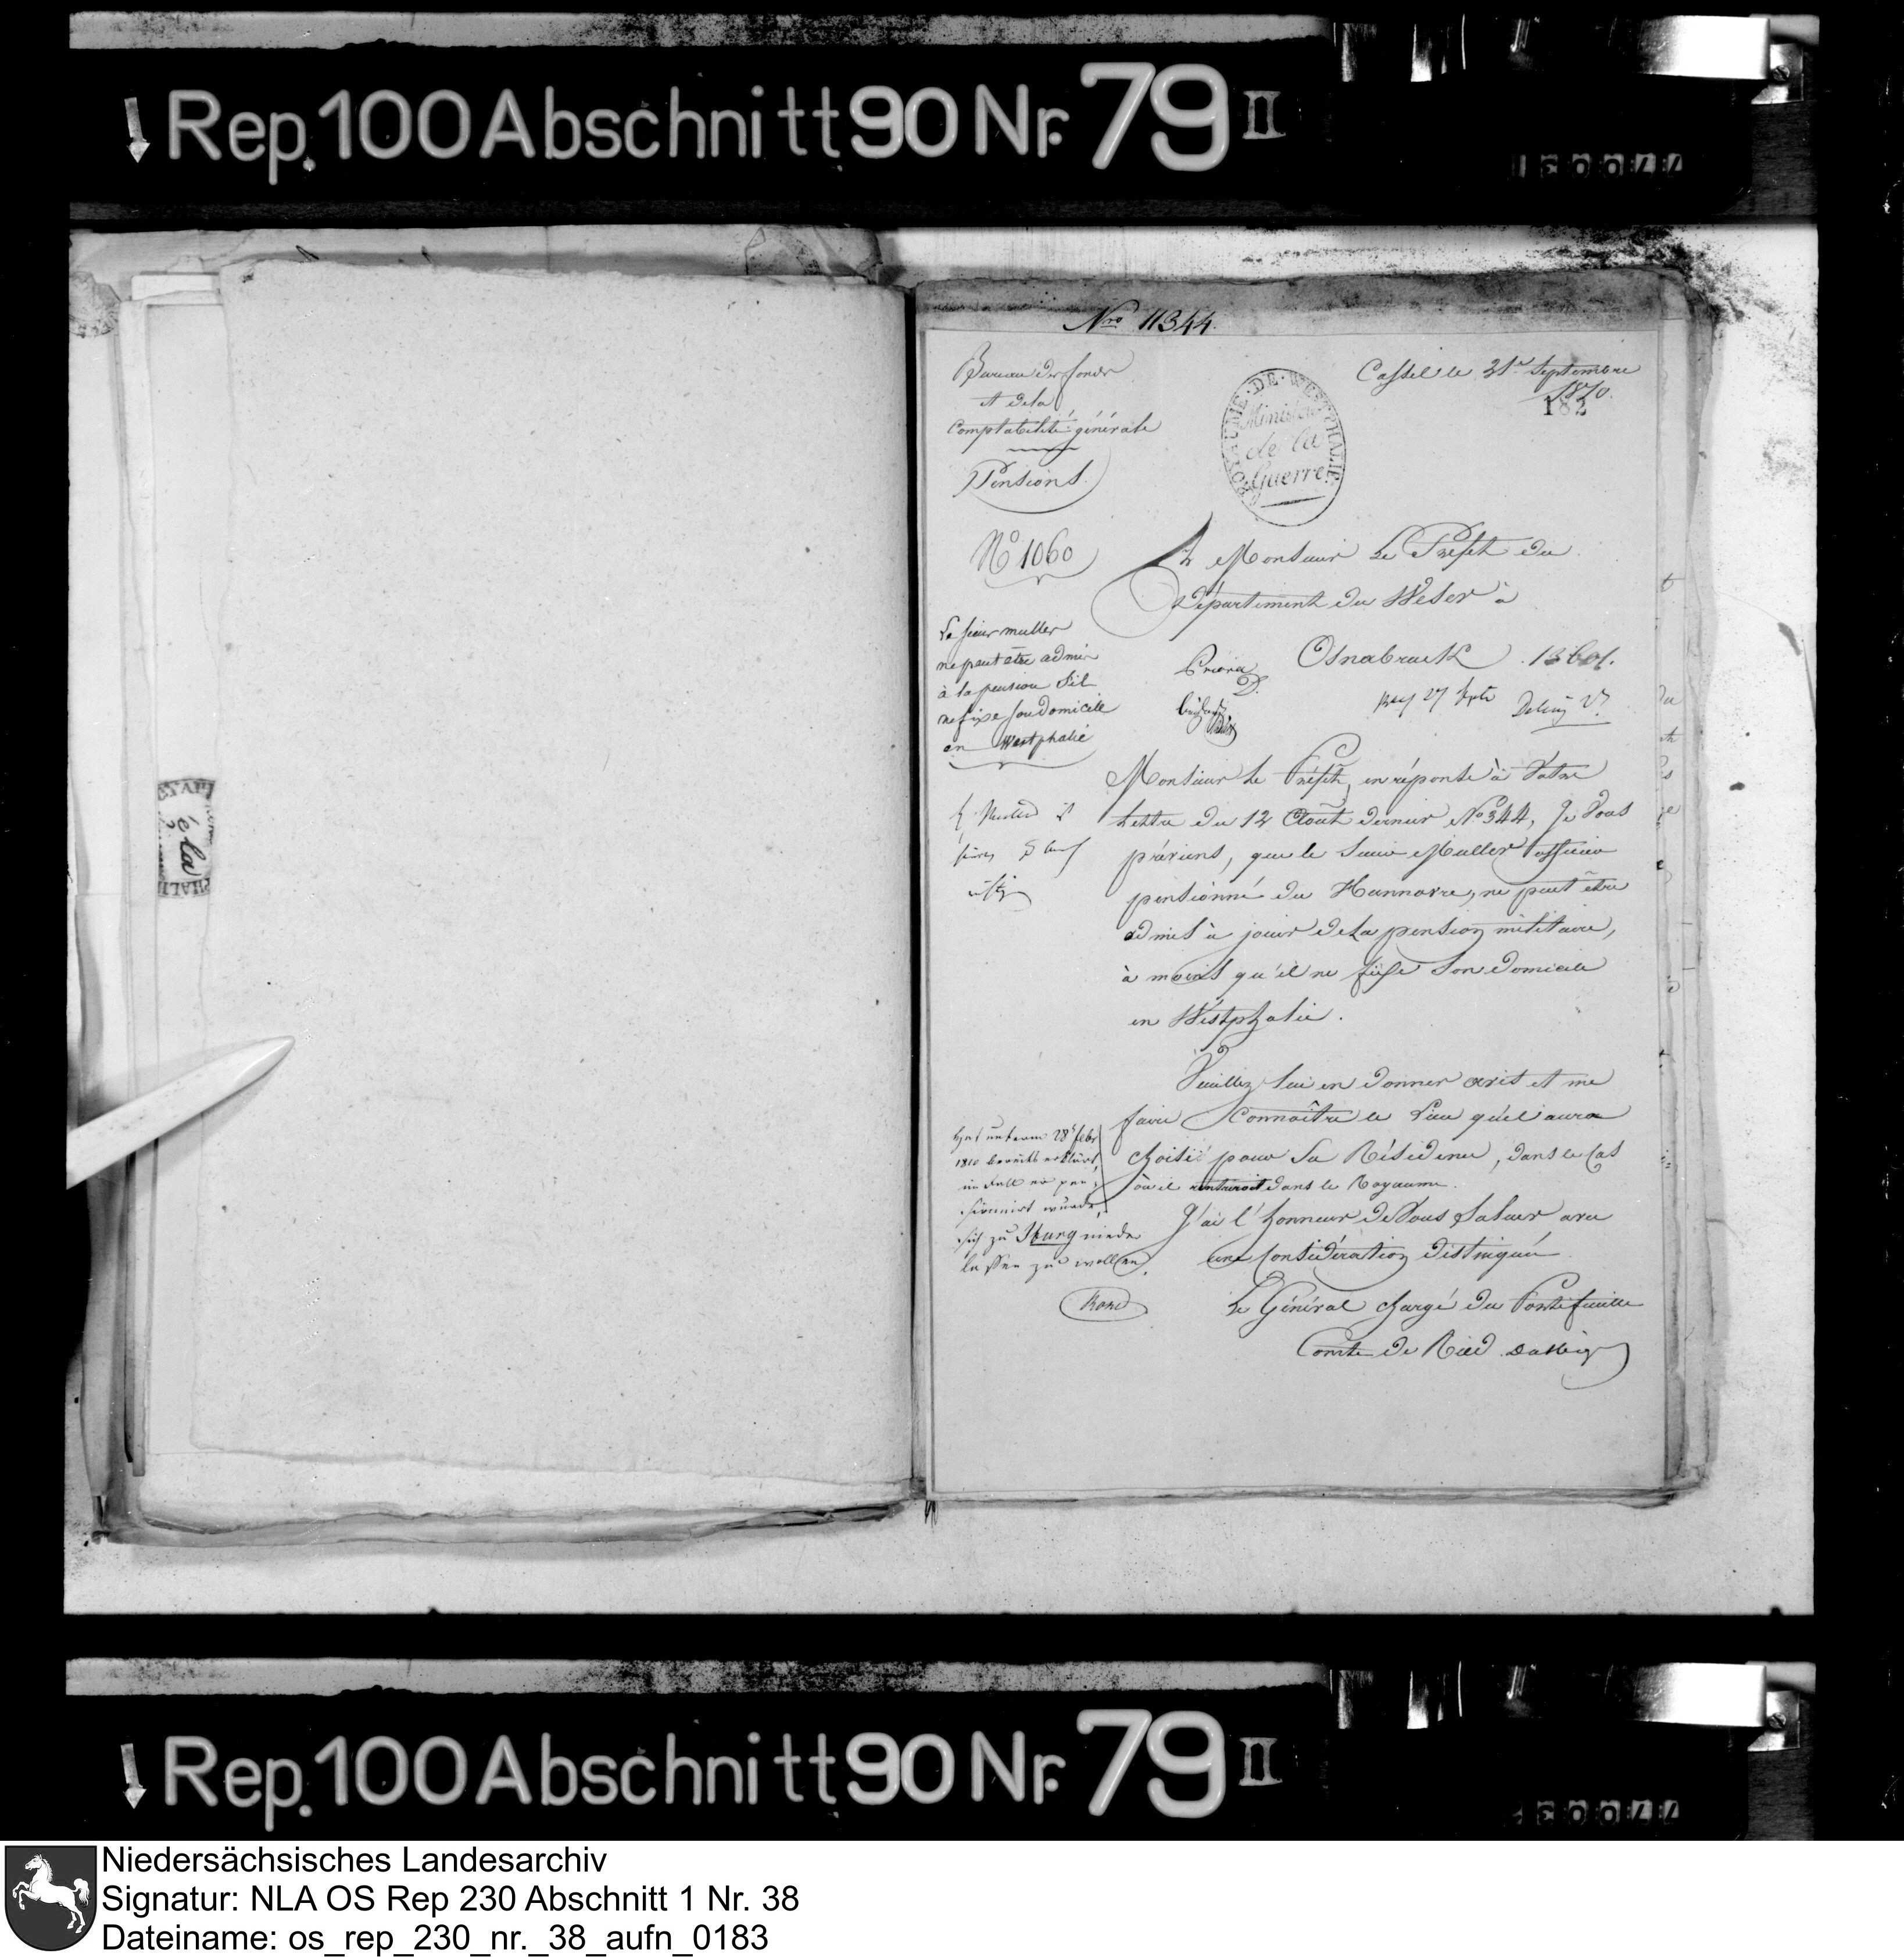 Rep. 100 Abschnitt 90 Nr. 79 II
Nro 11344.
Bureau des fonds
et de la
Comptabilité générale
Pensions.
Cassel le 21 Septembre
1810.
182
ROYAUME · DE · WESTPHALIE
Ministère
de la
Guerre
No 1060
A Monsieur Le Préfet du
Département du Weser à
Osnabruck
Le sieur muller
ne peut être admis
à la pension s'il
ne fixe son domicile
en Westphalie
Monsieur Le Préfet, en réponse à Votre
Lettre du 12 Août dernier No 344, Je Vous
préviens, que le Sieur Muller officier
pensionné du Hannovre, ne peut être
admis à jouir de la pension militaire,
à moins qu'il ne fixe son domicile
en Westphalie.
Veuillez lui en donner avis et me
faire connoître le Lieu qu'il aura
choisi pour sa Résidence, dans le Cas
où il rentreroit dans le Royaume.
J'ai l'honneur de Vous Saluer avec
une Considération distinguée
Le Général chargé du Portefeuille
Comte de
Hat unterm 28t febr
1810 bereits erklärt,
im Fall er pen-
sionirt wurde,
sich zu Iburg nieder
lassen zu wollen.
é la
Rep. 100 Abschnitt 90 Nr. 79 II
Niedersächsisches Landesarchiv
Signatur: NLA OS Rep 230 Abschnitt 1 Nr. 38
Dateiname: os_rep_230_nr._38_aufn_0183